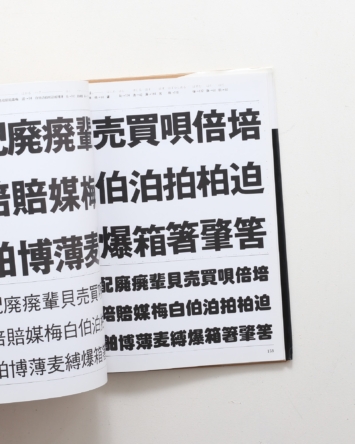 廃癈輩
賠媒梅
博薄麦
廃癈輩貝売買
賠媒梅白伯泊
博薄麦縛爆箱
売買唄倍培
伯泊拍柏迫
爆箱箸肇筈
配廃癈輩貝売買唄倍培
陪賠媒梅白伯泊拍柏迫
舶博薄麦縛爆箱箸肇筈